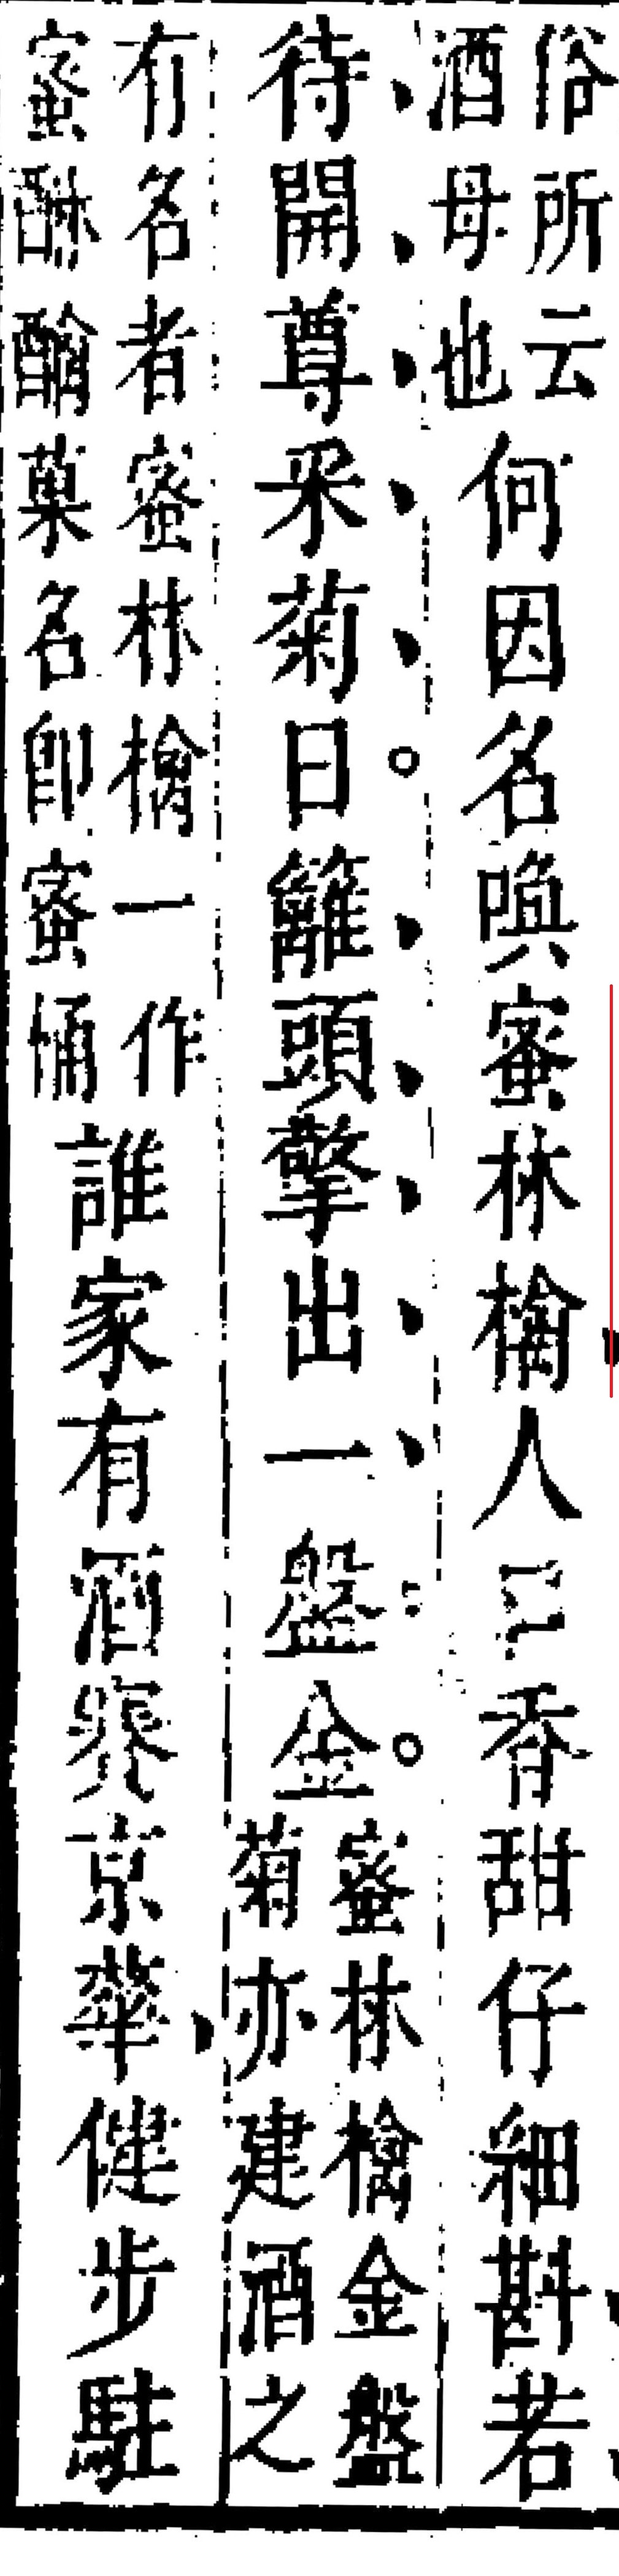 俗所云
酒母也
何因名喚蜜林檎人口香甜仔細斟若
待開尊采菊日籬頭擎出一盤金
蜜林檎金盤
菊亦建酒之
有名者蜜林檎一作
蜜醂菓名卽蜜
誰家有酒京華健步駐